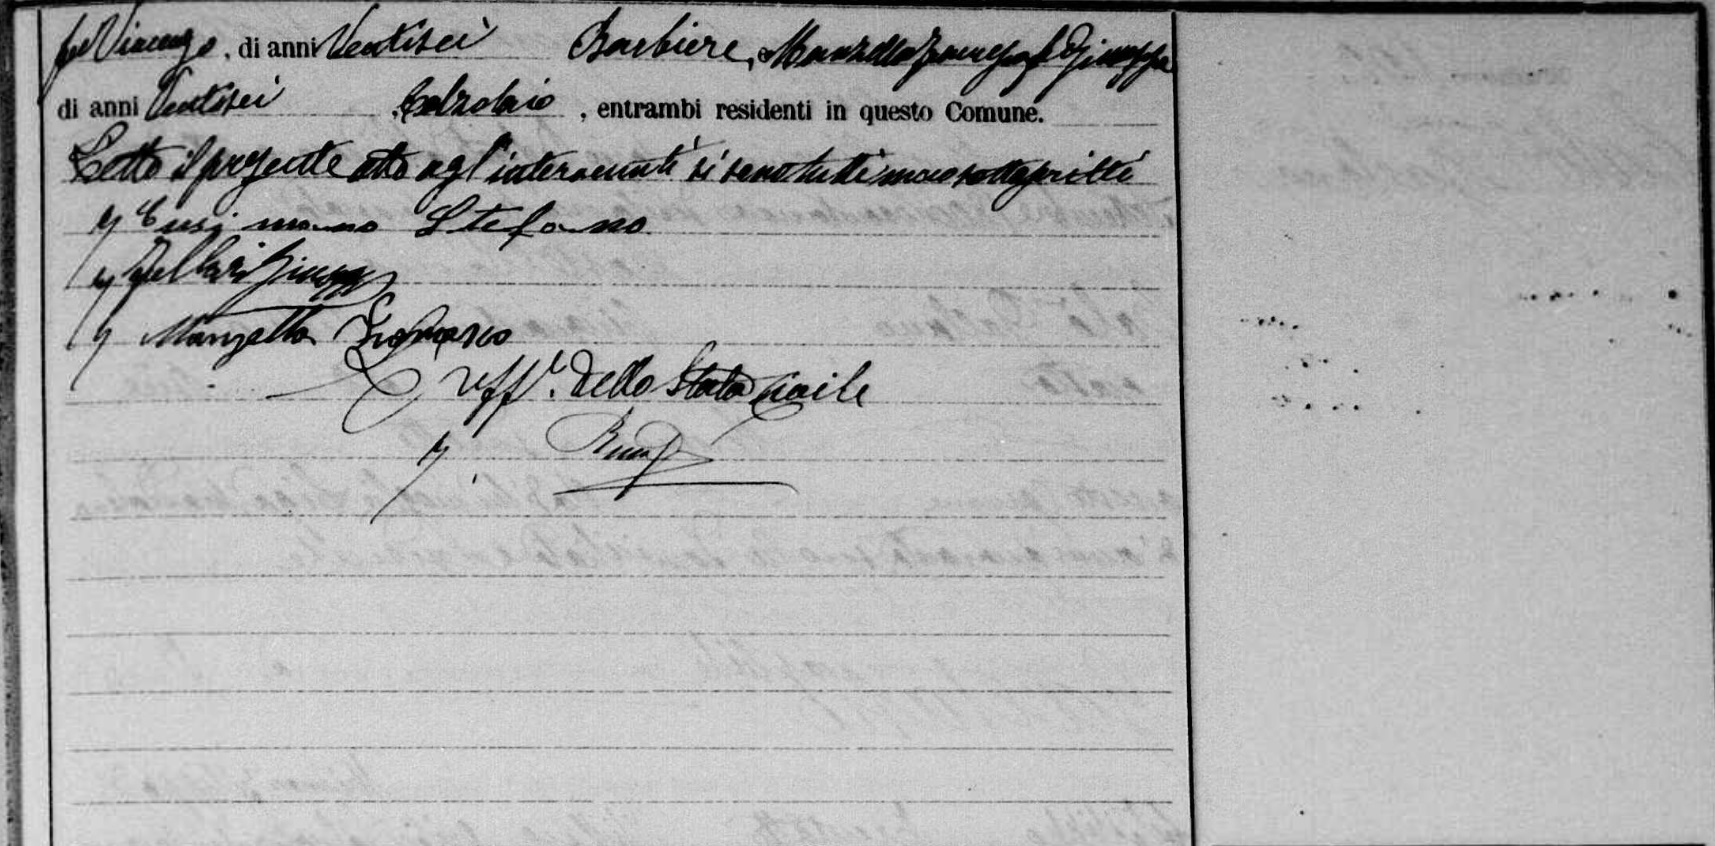 fu Vincenzo, di anni Ventisei Barbiere, e Manzella Francesco di Giuseppe
di anni Ventisei, Calzolaio, entrambi residenti in questo Comune.
Letto il presente atto agl'intervenuti si sono tutti meco sottoscritti
Cusimano Stefano
Giuseppe
Manzella Francesco
L'Uff.le dello Stato Civile